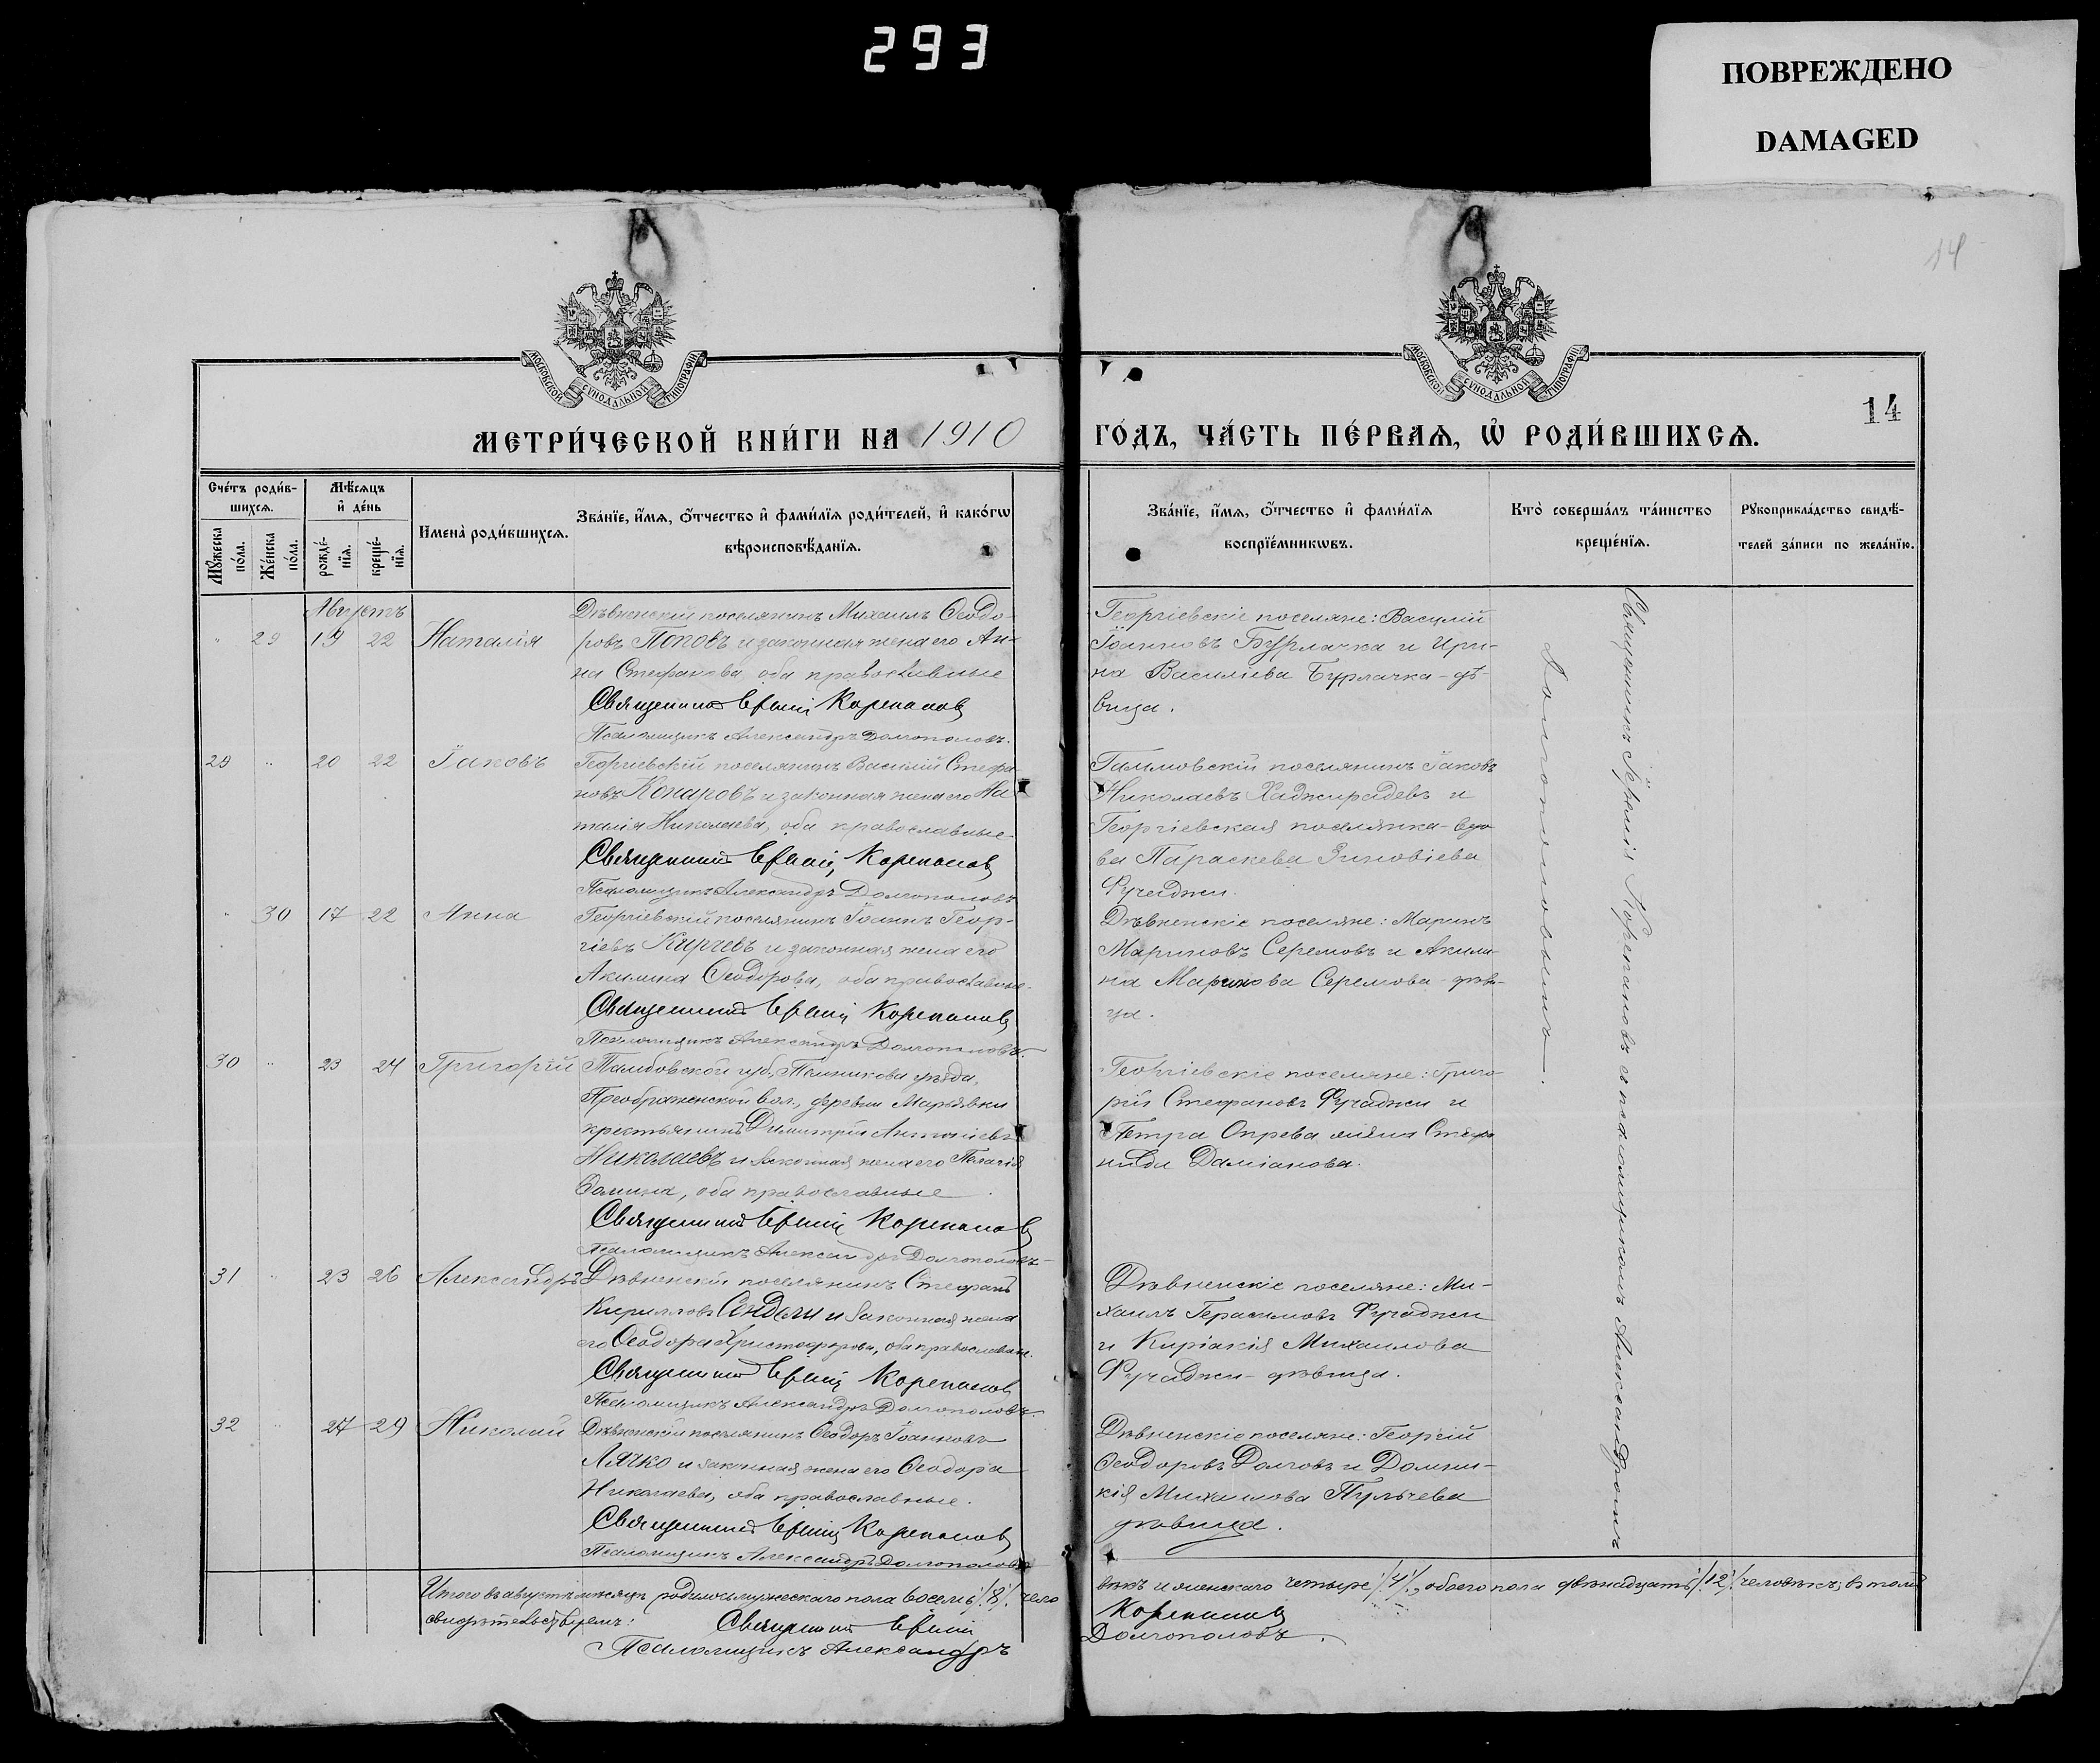 293
ПОВРЕЖДЕНО
DAMAGED
14
МОСКОВСКОЙ СУНОДАЛЬНОЙ ТИПОГРАФІИ
МОСКОВСКОЙ СУНОДАЛЬНОЙ ТИПОГРАФІИ
14
МЕТРИ́ЧЕСКОЙ КНИ́ГИ НА 1910
ГО́ДЪ, ЧА́СТЬ ПЕ́РВАѦ, Ѡ҆ РОДИ́ВШИХСѦ.
Сче́тъ роди́в-
шихсѧ.
Мꙋ́жеска по́ла.
Же́нска по́ла.
Мѣ́сѧцъ
и҆ де́нь
рожде́-
нїѧ.
креще́-
нїѧ.
Имена̀ роди́вшихсѧ.
Зва́нїе, и҆́мѧ, ѻ҆́тчество и҆ фами́лїѧ роди́телей, и҆ како́гѡ
вѣроисповѣ́данїѧ.
Зва́нїе, и҆́мѧ, ѻ҆́тчество и҆ фами́лїѧ
воспрїе́мникѡвъ.
Кто̀ соверша́лъ та́инство
креще́нїѧ.
Рꙋкоприкла́дство свидѣ́-
телей за́писи по жела́нїю.
Августъ
" 29 19 22 Наталія
Дѣвненскій поселянинъ Михаилъ Ѳеодо-
ровъ Поповъ и законная жена его Ан-
на Стефанова, оба православные
Священникъ Ефимій Корепановъ
Псаломщикъ Александръ Долгополовъ.
Георгіевскіе поселяне: Василій
Іоанновъ Бурлачка и Ири-
на Василіева Бурлачка - дѣ-
вица.
29 " 20 22 Іаковъ
Георгіевскій поселянинъ Василій Стефа
новъ Конаровъ и законная жена его На
талія Николаева, оба православные
Священникъ Ефимій Корепановъ
Псаломщикъ Александръ Долгополовъ
поселянинъ Іаковъ
Николаевъ Хаджирадевъ и
Георгіевская поселянка - вдо
ва Параскева Зиновіева
Фучаджи.
" 30 17 22 Анна
Георгіевскій поселянинъ Іоаннъ Геор-
гіевъ Кирчевъ и законная жена его
Акилина Ѳеодорова, оба православные.
Священникъ Ефимій Корепановъ
Псаломщикъ Александръ Долгополовъ.
Дѣвненскіе поселяне: Маринъ
Мариновъ Серемовъ и Акили-
на Маринова Серемова - дѣви-
ца.
30 " 23 24 Григорій
Тамбовской губ., Темникова уѣзда,
Преображенской вол., деревни Марьевки
крестьянинъ Димитрій Антоніевъ
Николаевъ и законная жена его Пелагія
Ѳомина, оба православные.
Священникъ Ефимій Корепановъ
Псаломщикъ Александръ Долгополовъ
Георгіевскіе поселяне: Григо-
рій Стефановъ Фучаджи и
Петра Опрева жена Стефа
нида Даміанова.
31 " 23 26 Александръ
Дѣвненскій поселянинъ Стефанъ
Кирилловъ и законная жена
его Ѳеодора Христофорова, оба православные.
Священникъ Ефимій Корепановъ
Псаломщикъ Александръ Долгополовъ.
Дѣвненскіе поселяне: Ми-
хаилъ Герасимовъ Фучаджи
и Киріакія Михаилова
Фучаджи - дѣвица.
32 " 27 29 Николай
Дѣвненскій поселянинъ Ѳеодоръ Іоанновъ
Лячко и законная жена его Ѳеодора
Николаева, оба православные.
Священникъ Ефимій Корепановъ
Псаломщикъ Александръ Долгополовъ
Дѣвненскіе поселяне: Георгій
Ѳеодоровъ Долговъ и Домни-
кія Михаилова Пульчева
дѣвица.
Священникъ Ефимій Корепановъ съ псаломщикомъ Александромъ
Долгополовымъ.
Итого въ августѣ мѣсяцѣ родилось мужескаго пола восемь /8/ чело
вѣкъ и женскаго четыре /4/, обоего пола двѣнадцать /12/ человѣкъ; въ томъ
свидѣтельствуемъ: Священникъ Ефимій
Корепановъ
Псаломщикъ Александръ
Долгополовъ.